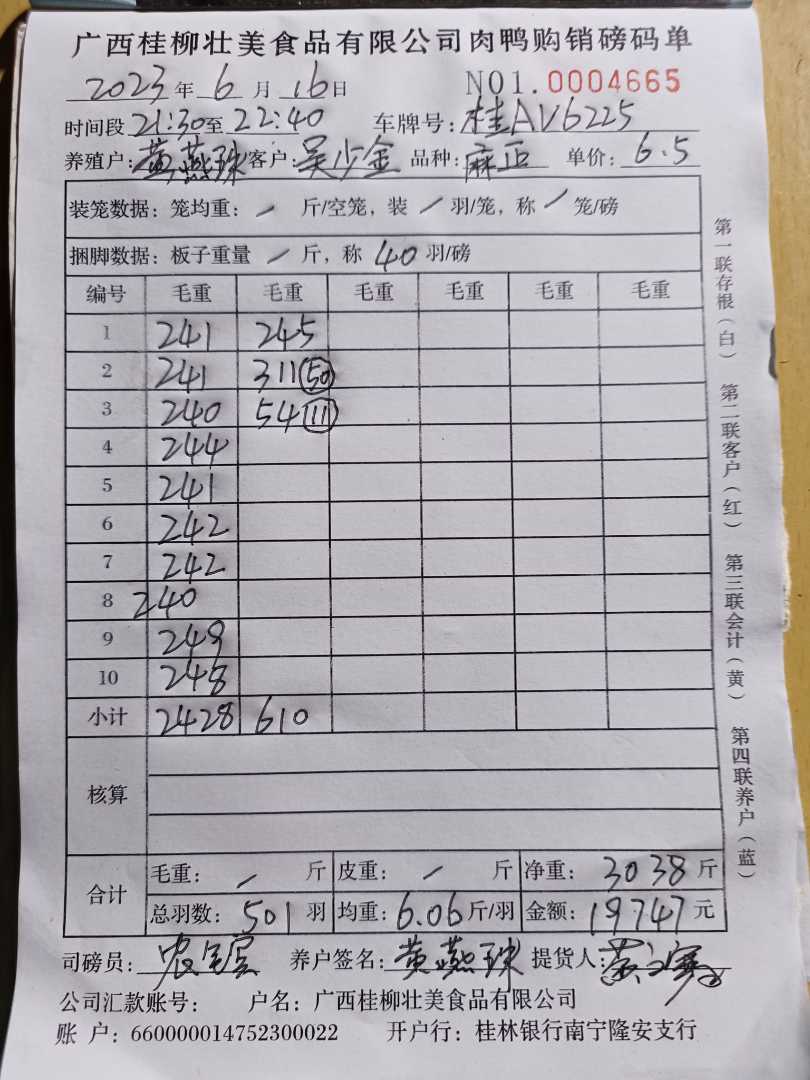 广西桂柳壮美食品有限公司肉鸭购销磅码单
2023年6月16日 NO1.0004665
时间段21:30至22:40 车牌号:桂AV6225
养殖户:黄燕珠客户:吴少金 品种:麻正 单价:6.5
装笼数据:笼均重:/斤/空笼,装/羽/笼,称/笼/磅
捆脚数据:板子重量/斤,称40羽/磅
编号 毛重 毛重 毛重 毛重 毛重 毛重
1 241 245
2 241 311(50)
3 240 54(11)
4 244
5 241
6 242
7 242
8 240
9 249
10 248
小计 2428 610
核算
合计 毛重:/斤 皮重:/斤 净重:3038斤
总羽数:501羽 均重:6.06斤/羽 金额:19747元
司磅员: 养户签名:黄燕珠 提货人:
公司汇款账号: 户名:广西桂柳壮美食品有限公司
账 户:660000014752300022 开户行:桂林银行南宁隆安支行
第一联存根(白) 第二联客户(红) 第三联会计(黄) 第四联养户(蓝)